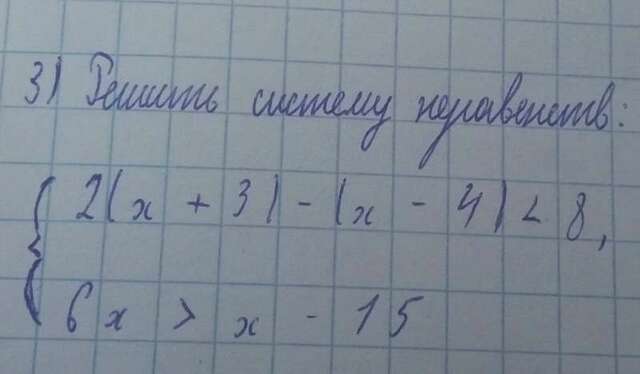 3) Решить систему неравенств:
2(x + 3) - (x - 4) < 8,
6x > x - 15